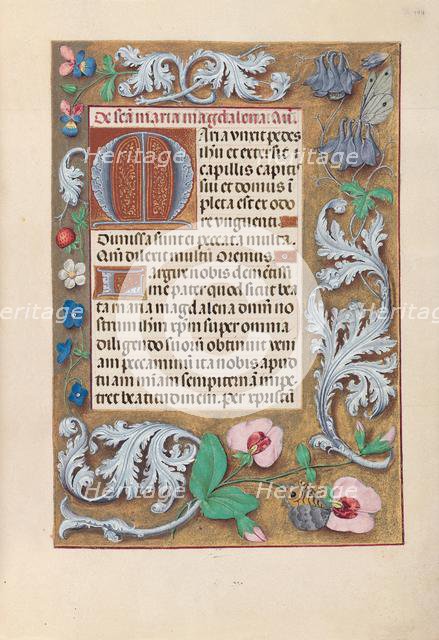 De scā maria magdalena: Añ.
Maria unxit pedes
ihū et extersit
capillis capitis
sui et domus ī
pleta est ex odo
re unguenti.
Dimissa sunt ei peccata multa.
Qm̄ dilexit multū Oremus
Largire nobis clemētissi
me pater quod sicut bea
ta maria magdalena dn̄m no
strum ihūm xp̄m super omnia
diligendo suorū obtinuit veni
am peccaminū ita nobis apud
tuam mīam sempiternā impe
tret beatitudinem. per xp̄m
Heritage
Heritage
Heritage
Heritage
Heritage
Heritage